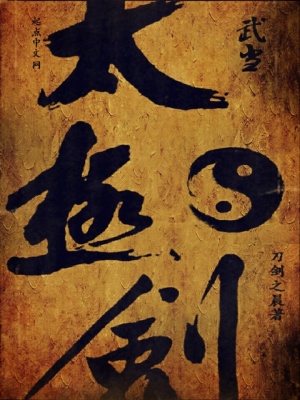 起点中文网
武当
太极剑
刀剑之晨著